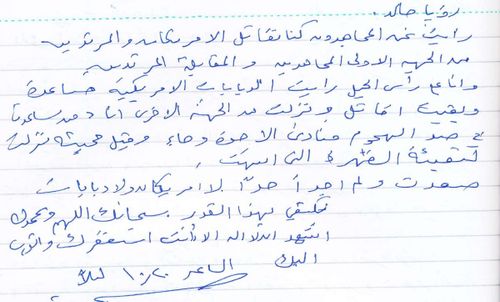 رؤيا خالد.
رأيت نحن المجاهدون كنا نقاتل الامريكان والمرتدين
من الجهة الاولى المجاهدين والمقابلة المرتدين
وأنا على رأس الجبل رأيت الدبابات الامريكية صاعدة
وبقيت اقاتل ونزلت من الجهة الاخرى أنا
في صد الهجوم فنادى الاخوة وجاء وقبل مجيئه نزلت
لتعبئة التي انتهت
صعدت ولم أجد أحداً لا امريكان ولا دبابات
نكتفي بهذا القدر. سبحانك اللهم وبحمدك
اشهد ان لا اله الا أنت استغفرك وأتوب
اليك
الساعة ١٠:٢٠ ليلاً